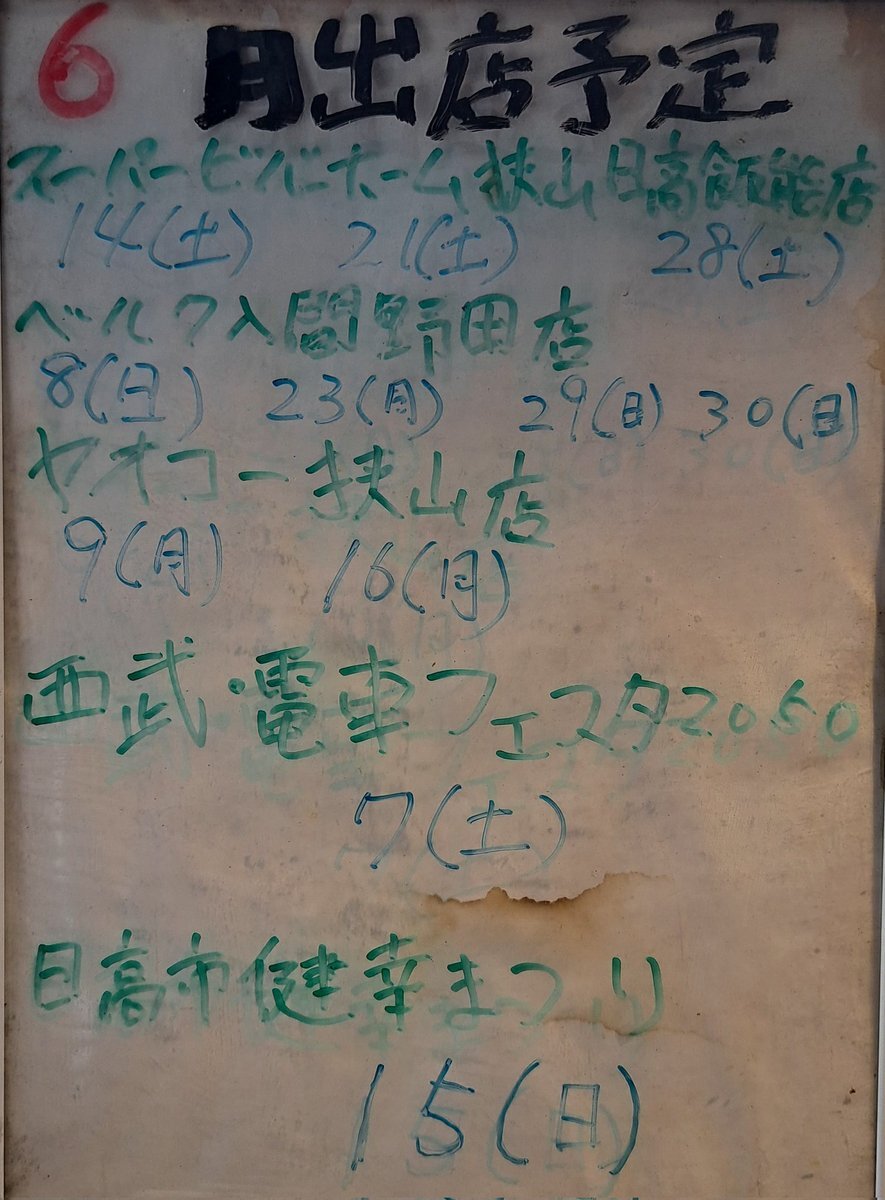 6月出店予定
スーパービバホーム狭山日高飯能店
14(土) 21(土) 28(土)
ベルク入間野田店
8(日) 23(月) 29(日) 30(日)
ヤオコー狭山店
9(月) 16(月)
西武・電車フェスタ2050
7(土)
日高市健幸まつり
15(日)